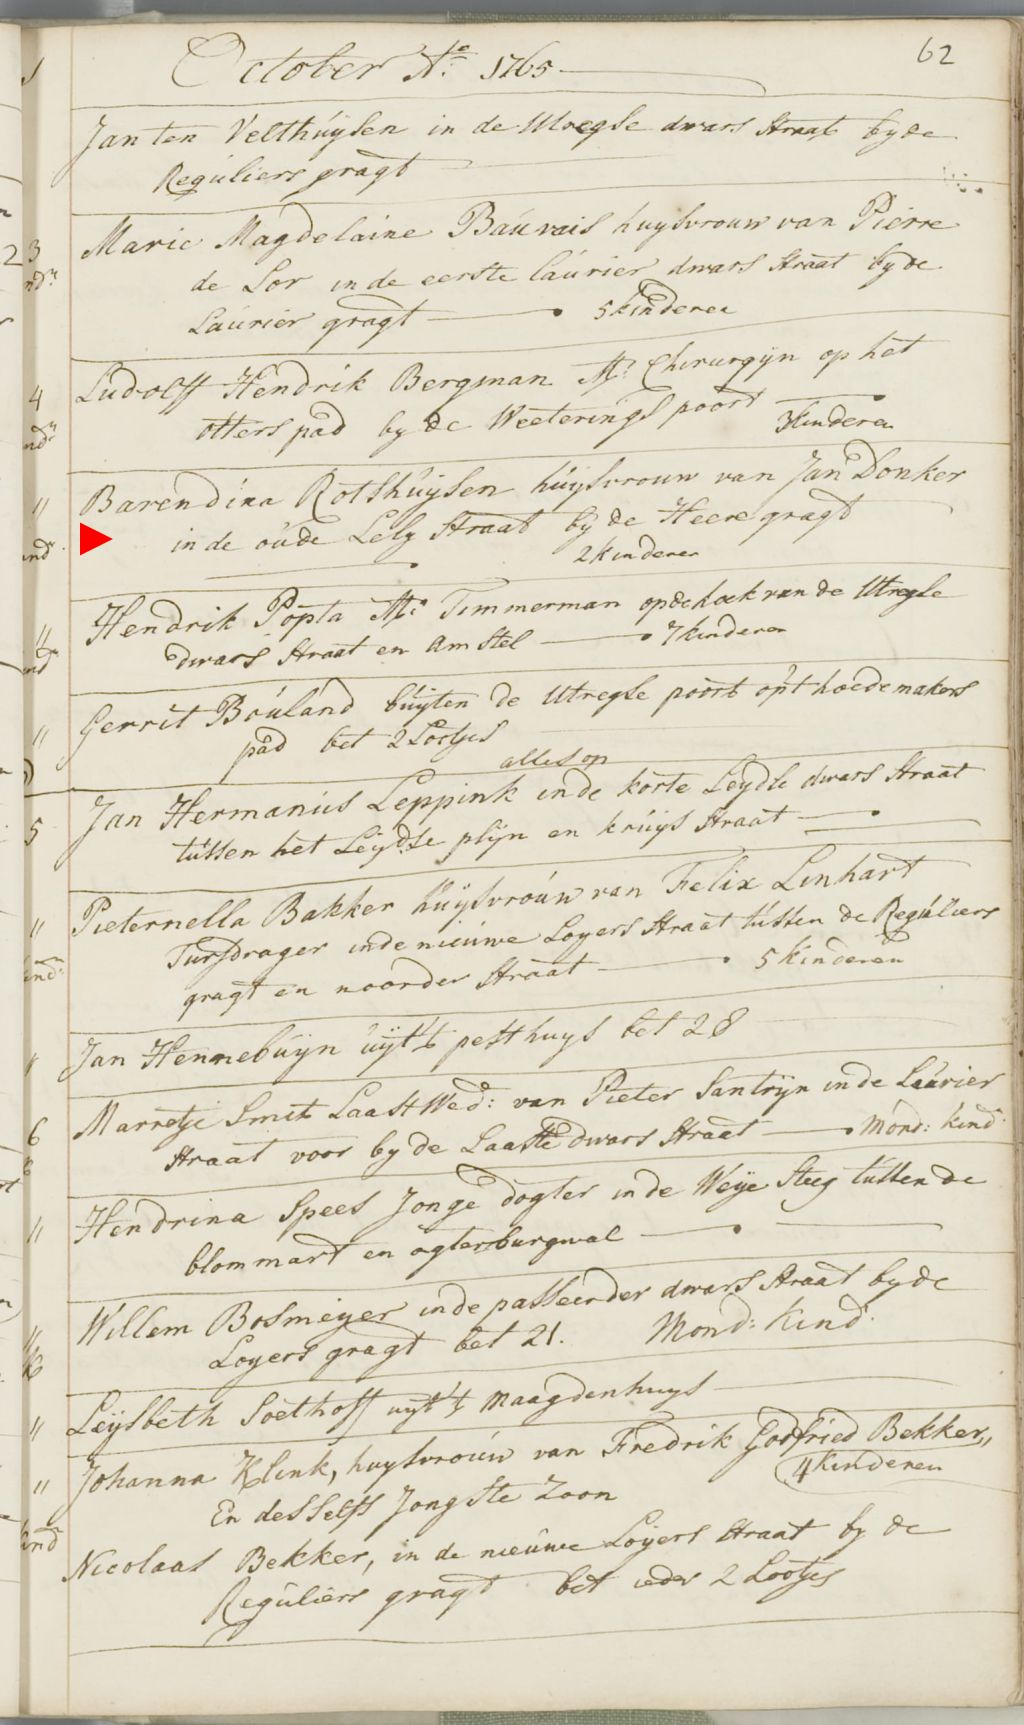 62
October Ao: 1765
Jan ten Velthuysen in de Utregse dwars straat by de
Reguliers gragt
Marie Magdelaine Bauvais huysvrouw van Pierre
de Lor in de eerste laurier dwars straat by de
Laurier gragt 5 kinderen
Ludolff Hendrik Bergman Mr Chirurgijn op het
otters pad by de Weeterings poort
3 kinderen
Barendina Rotshuysen huysvrouw van Jan Donker
in de oude Lely straat by de Heere gragt
2 kinderen
Hendrik Popta Mr Timmerman op de hoek van de Utregse
dwars straat en Amstel 7 kinderen
Gerrit Bouland buyten de Utregse poort op't hoedemakers
pad bet 2 Lootjes
alles op
Jan Hermanus Leppink in de korte Leydse dwars straat
tussen het Leydse plijn en kruys straat
Pieternella Bakker huysvrouw van Felix Linhart
Turfdrager in de nieuwe Loyers straat tussen de Reguliers
gragt en noorder straat 5 kinderen
Jan Hennebuyn uyt't pesthuys bet 28
Marretje Smit Laast Wed: van Pieter Santrijn in de Laurier
straat voor by de Laaste dwars straat Mond: kind
Hendrina Spees Jonge dogter in de Weye Steeg tussen de
blommart en agterburgwal
Willem Bosmeyer in de passeerder dwars straat by de
Loyers gragt bet 21. Mond: kind:
Leysbeth Soethoff uyt't Maagdenhuys
Johanna Klink, huysvrouw van Fredrik Godfried Bekker,,
4 kinderen
En desselfs Jongste Zoon
Nicolaas Bekker, in de nieuwe Loyers straat by de
Reguliers gragt bet ieder 2 Lootjes